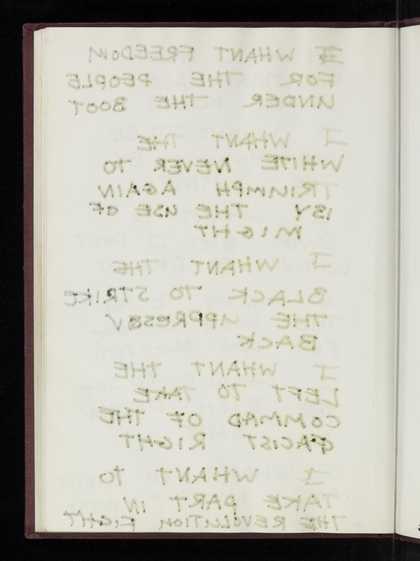 I WHANT FREEDOM
FOR THE PEOPLE
UNDER THE BOOT
I WHANT THE
WHITE NEVER TO
TRIUMPH AGAIN
BY THE USE OF
MIGHT
I WHANT THE
BLACK TO STRIKE
THE UPPRESSEV
BACK
I WHANT THE
LEFT TO TAKE
COMMAD OF THE
FACIST RIGHT
I WHANT TO
TAKE PART IN
THE REVOLUTION FIGHT